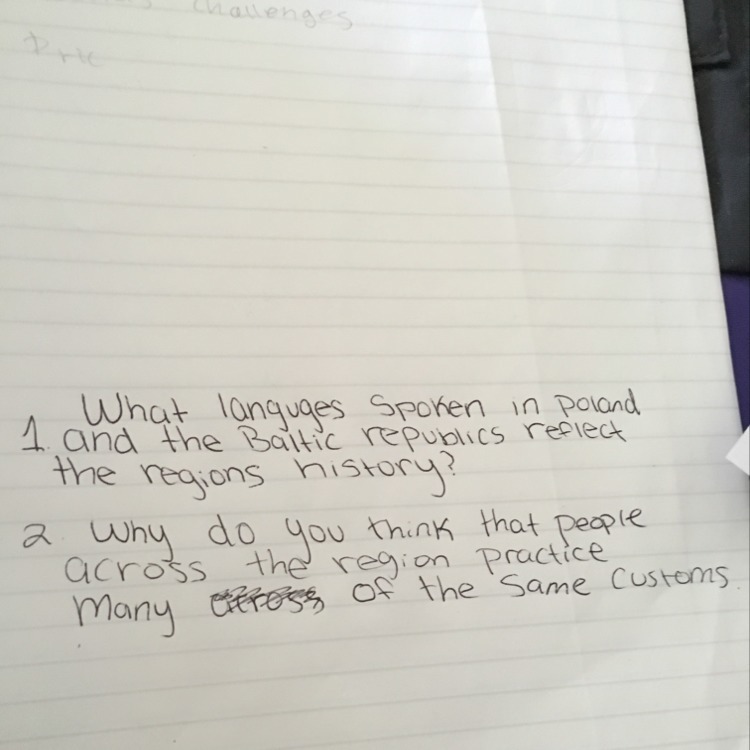 Challenges
What languges Spoken in poland
1. and the Baltic republics reflect
the regions history?
2 Why do you think that people
across the region practice
many of the same customs.